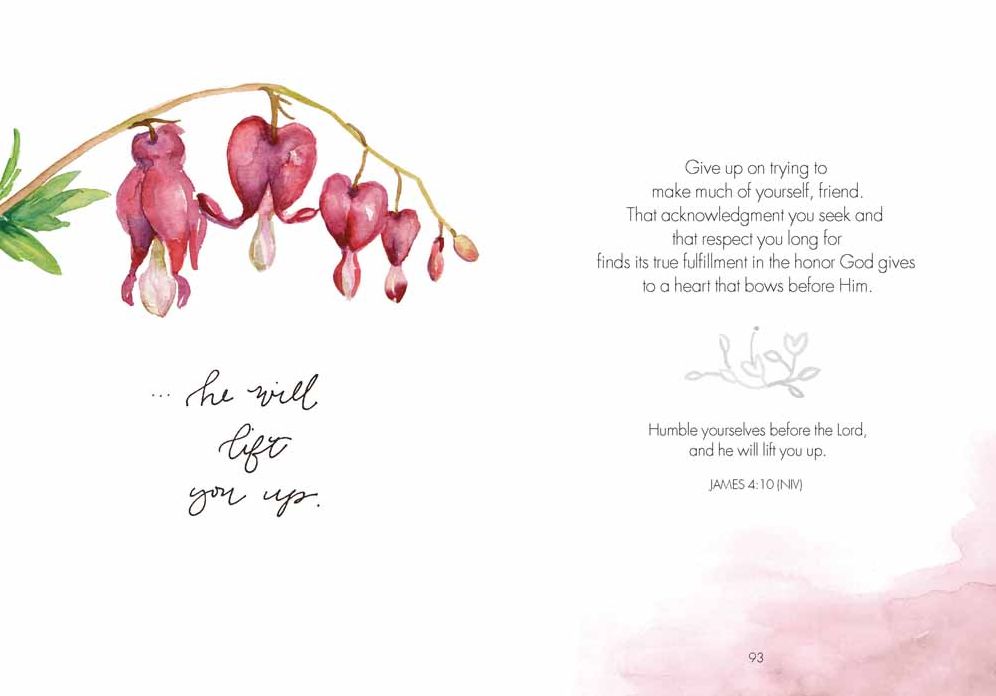 ... he will
lift
you up.
Give up on trying to
make much of yourself, friend.
That acknowledgment you seek and
that respect you long for
finds its true fulfillment in the honor God gives
to a heart that bows before Him.
Humble yourselves before the Lord,
and he will lift you up.
JAMES 4:10 (NIV)
93